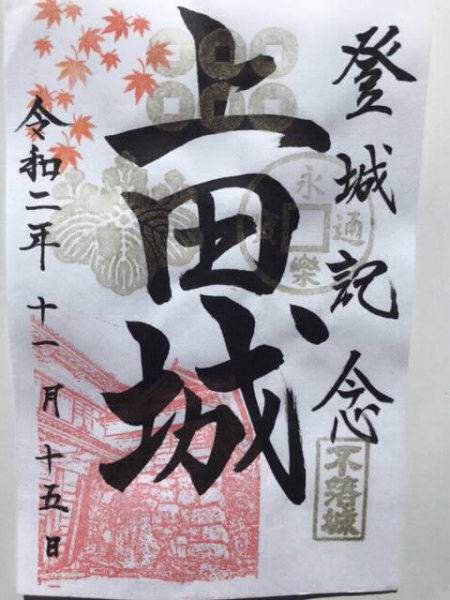 登城記念
永樂通寳
不落城
上田城
令和二年 十一月 十五日